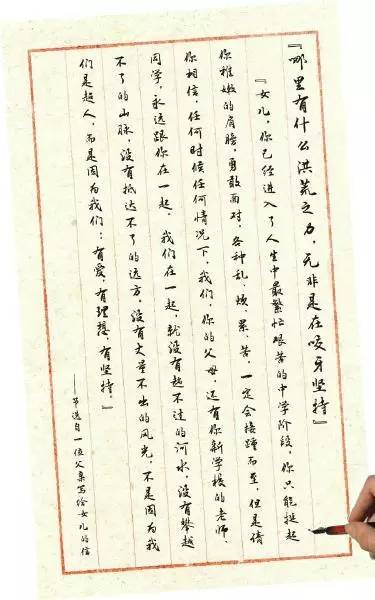 『哪里有什么洪荒之力，无非是在咬牙坚持』
『女儿，你已经进入了人生中最繁忙艰苦的中学阶段，你只能挺起
你稚嫩的肩膀，勇敢面对，各种乱、烦、累、苦，一定会接踵而至，但是请
你相信，任何时候任何情况下，我们，你的父母，还有你新学校的老师、
同学，永远跟你在一起。我们在一起，就没有越不过的河水，没有攀越
不了的山脉，没有抵达不了的远方，没有丈量不出的风光，不是因为我
们是超人，而是因为我们：有爱，有理想，有坚持。』
——节选自一位父亲写给女儿的信